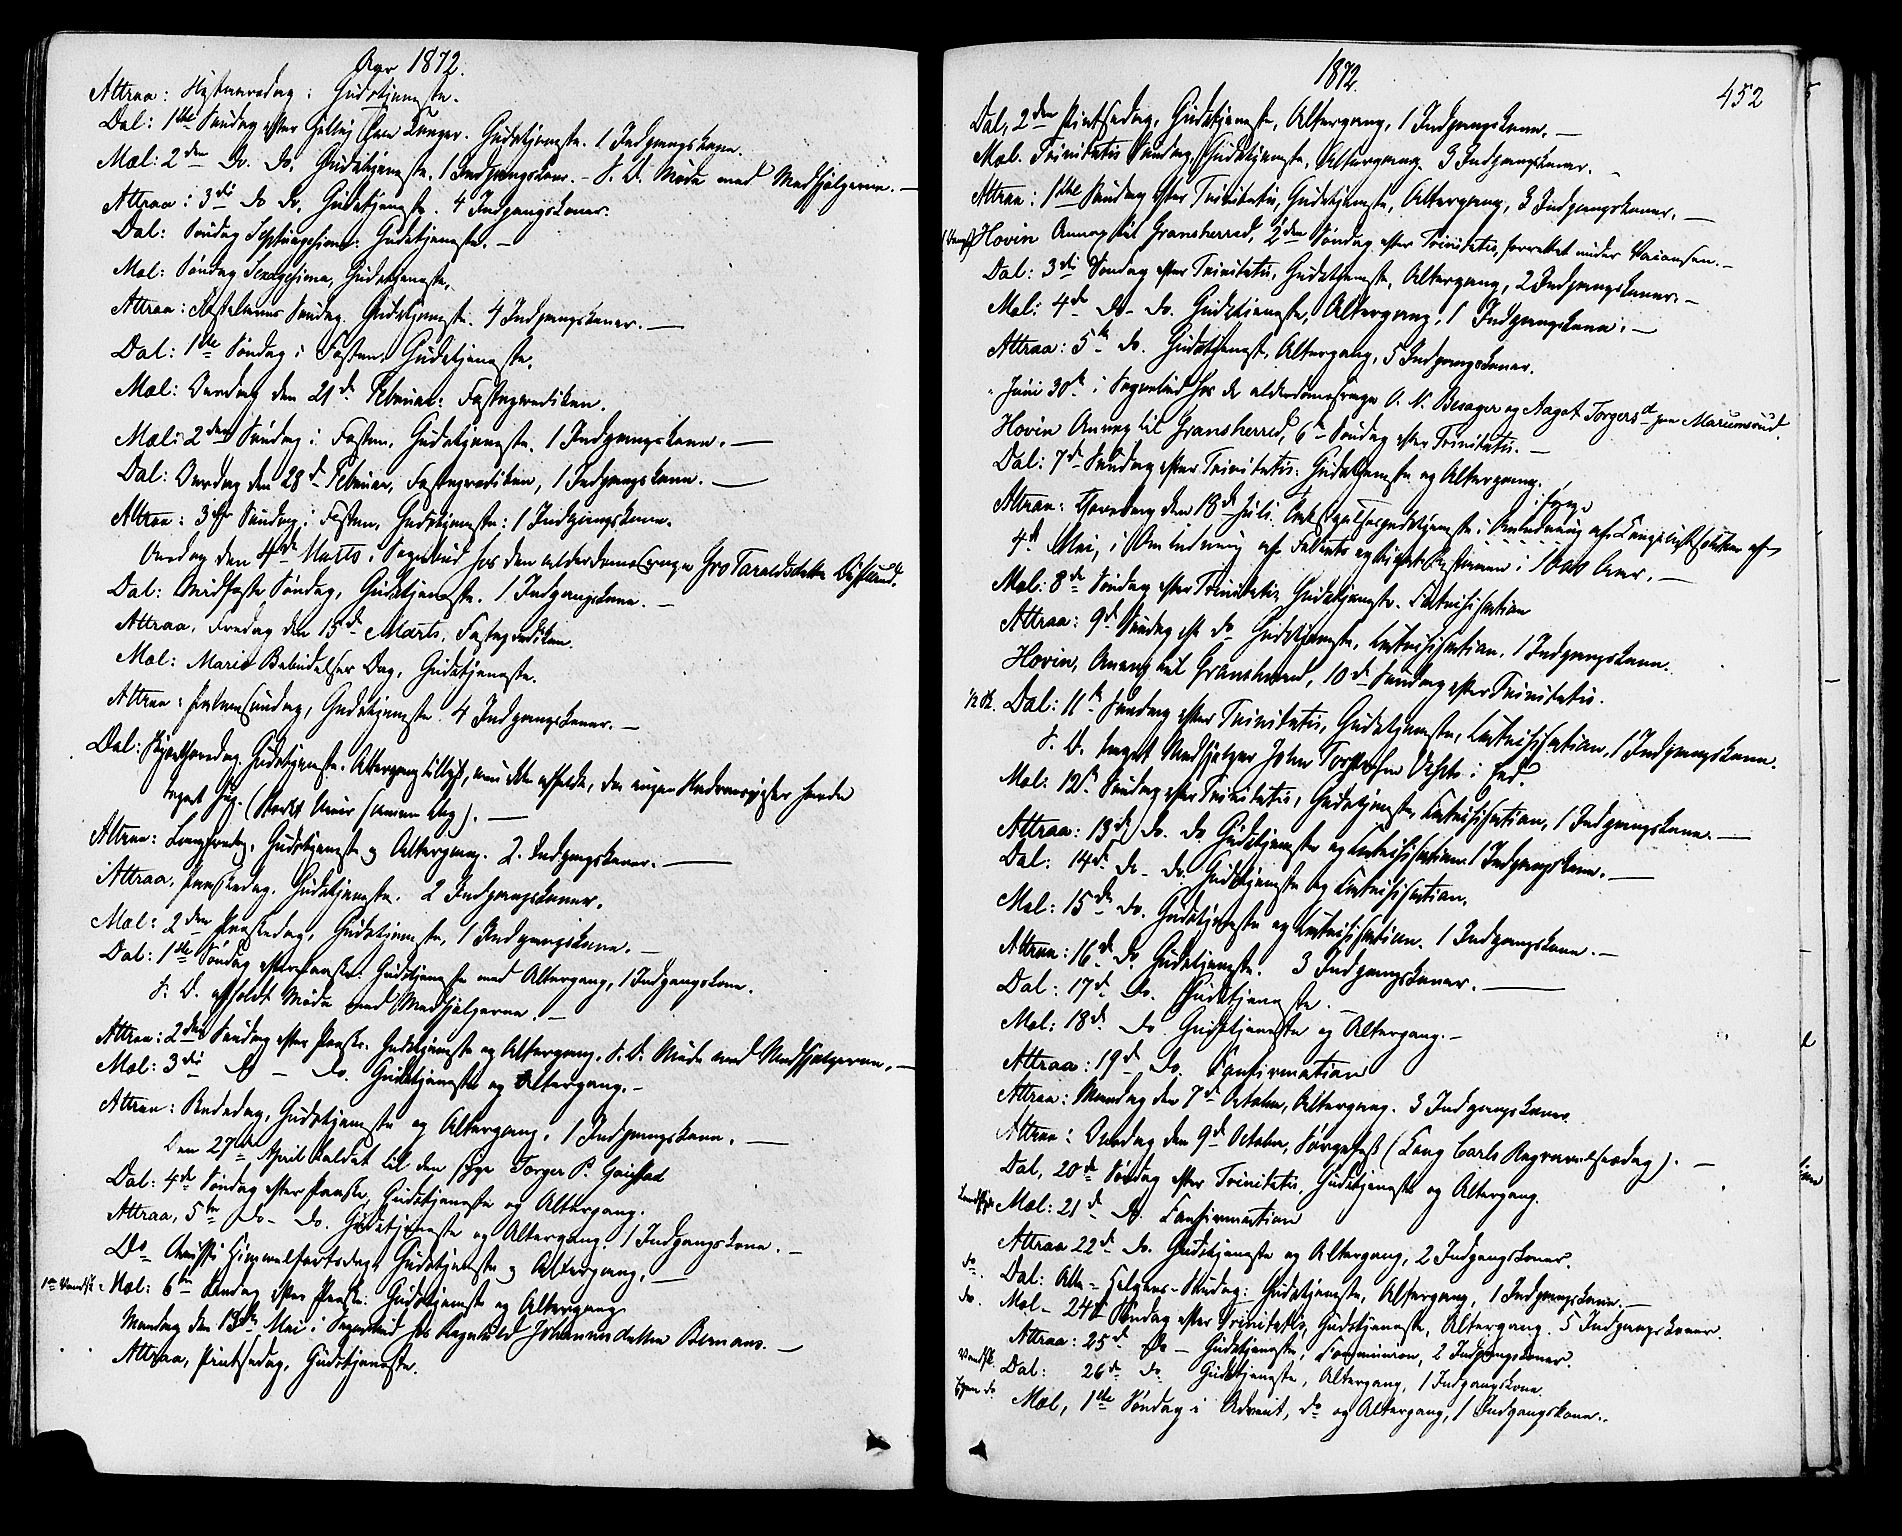 Aar 1872.
Attraa: Nytaarsdag: Gudstjeneste.
Dal: 1ste Søndag efter Hellig tre Konger. Gudstjeneste. 1 Indgangskone.
Mæl: 2den Do. Do. Gudstjeneste. 1 Indgangskone. – S. D. Møde med Medhjælperne. –
Attraa: 3die Do Do. Gudstjeneste. 4 Indgangskoner.
Dal: Søndag Septuagesima: Gudstjeneste. –
Mæl: Søndag Sexagesima, Gudstjeneste,
Attraa: Fastelavns Søndag. Gudstjeneste. 4 Indgangskoner. –
Dal: 1ste Søndag i Fasten. Gudstjeneste.
Mæl: Onsdag den 21de Februar: Fasteprædiken.
Mæl: 2den Søndag i Fasten, Gudstjeneste. 1 Indgangskone. –
Dal: Onsdag den 28de Februar, Fasteprædiken, 1 Indgangskone. –
Attraa: 3die Søndag i Fasten, Gudstjeneste: 1 Indgangskone.
Onsdag den Marts i Sognebud hos den alderdomssvage Gro Taraldsdatter
Dal: Midfaste Søndag, Gudstjeneste. 1 Indgangskone. –
Attraa, Fredag den 15de Marts. Fasteprædiken.
Mæl: Mariæ Bebudelses Dag, Gudstjeneste.
Attraa: Palmesøndag, Gudstjeneste. 4 Indgangskoner. –
Dal: Skjærthorsdag. Gudstjeneste. Altergang tillyst, men ikke afholdt, da ingen Nadvergjæster havde
meldt sig. (Stærkt Uveir samme Dag). –
Attraa: Langfredag, Gudstjeneste og Altergang. 2. Indgangskoner. –
Attraa, Paaskedag. Gudstjeneste. 2 Indgangskoner.
Mæl: 2den Paaskedag, Gudstjeneste, 1 Indgangskone. –
Dal: 1ste Søndag efter Paaske: Gudstjeneste med Altergang, 1 Indgangskone.
S. D. afholdt Møde med Medhjælperne. –
Attraa: 2den Søndag efter Paaske. Gudstjeneste og Altergang. S. D. Møde med Medhjælperne. –
Mæl: 3die Do – Do. Gudstjeneste og Altergang. –
Attraa: Bededag, Gudstjeneste og Altergang. 1 Indgangskone. –
Den 27de April kaldet til den syge Torger P.
Dal: 4de Søndag efter Paaske, Gudstjeneste og Altergang.
Attraa, 5te Do – Do. Gudstjeneste og Altergang. 1 Indgangskone. –
Do Christi Himmelfartsdag, Gudstjeneste og Altergang. –
Mæl: 6te Søndag efter Paaske: Gudstjeneste og Altergang
Mandag den 13de Mai i Sognebud hos Johannesdatter Bernaas. –
Attraa, Pintsedag, Gudstjeneste.
1872.
452
Dal, 2den Pintsedag, Gudstjeneste, Altergang, 1 Indgangskone. –
Mæl. Trinitatis Søndag, Gudstjeneste, Altergang. 3 Indgangskoner. –
Attraa: 1ste Søndag efter Trinitatis, Gudstjeneste, Altergang, 3 Indgangskoner. –
Hovin Annex til Gransherred, 2den Søndag efter Trinitatis, forrettet under Vacansen. –
Dal: 3die Søndag efter Trinitatis, Gudstjeneste, Altergang, 2 Indgangskoner. –
Mæl: 4de Do – Do. Gudstjeneste, Altergang, 1 Indgangskone. –
Attraa: 5te Do. Gudstjeneste, Altergang, 5 Indgangskoner.
Juni 30te i Sognebud hos de alderdomssvage O. N. Besager og Aagot Torgersd. paa Marumsrud.
Hovin Annex til Gransherred, 6te Søndag efter Trinitatis. –
Dal: 7de Søndag efter Trinitatis: Gudstjeneste og Altergang.
Attraa: Torsdag den 18de Juli. Takksigelsesgudstjeneste i Anledning af Kongelig Resolution af
4de Mai, i Anledning af Rigets Bestaaen i 1000 Aar. –
Mæl: 8de Søndag efter Trinitatis Gudstjeneste. Catechisation
Attraa: 9de Søndag eft. Do Gudstjeneste, Catechisation. 1 Indgangskone.
Hovin, Annex til Gransherred, 10de Søndag efter Trinitatis.
Dal: 11te Søndag efter Trinitatis, Gudstjeneste, Catechisation, 1 Indgangskone.
S. D. taget Medhjælper John i Ed.
Mæl: 12te Søndag efter Trinitatis, Gudstjeneste, Catechisation, 1 Indgangskone. –
Attraa: 13de Do. Do Gudstjeneste og Catechisation 1 Indgangskone. –
Dal: 14de Do – Do. Gudstjeneste og Catechisation.
Mæl: 15de Do. Gudstjeneste og Catechisation. 1 Indgangskone. –
Attraa: 16de Do. Gudstjeneste. 3 Indgangskoner. –
Dal: 17de Do. Gudstjeneste. –
Mæl: 18de Do Gudstjeneste og Altergang. –
Attraa: 19de Do. Confirmation
Attraa: Mandag den 7de October, Altergang. 3 Indgangskoner
Attraa: Onsdag den 9de October, Sørgefest (Kong Carls Begravelsesdag). –
Dal, 20de Søndag efter Trinitatis, Gudstjeneste og Altergang.
Mæl: 21de Do. Confirmation
Attraa 22de Do. Gudstjeneste og Altergang, 2 Indgangskoner.
do. Dal: Alle-Helgens-Søndag: Gudstjeneste, Altergang, 1 Indgangskone. –
do. Mæl – 24de Søndag efter Trinitatis, Gudstjeneste, Altergang. 5 Indgangskoner.
Attraa: 25de Do – Gudstjeneste, Communion, 2 Indgangskoner.
Dal: 26de do Gudstjeneste, Altergang, 1 Indgangskone.
Mæl, 1ste Søndag i Advent, do og Altergang, 1 Indgangskone.